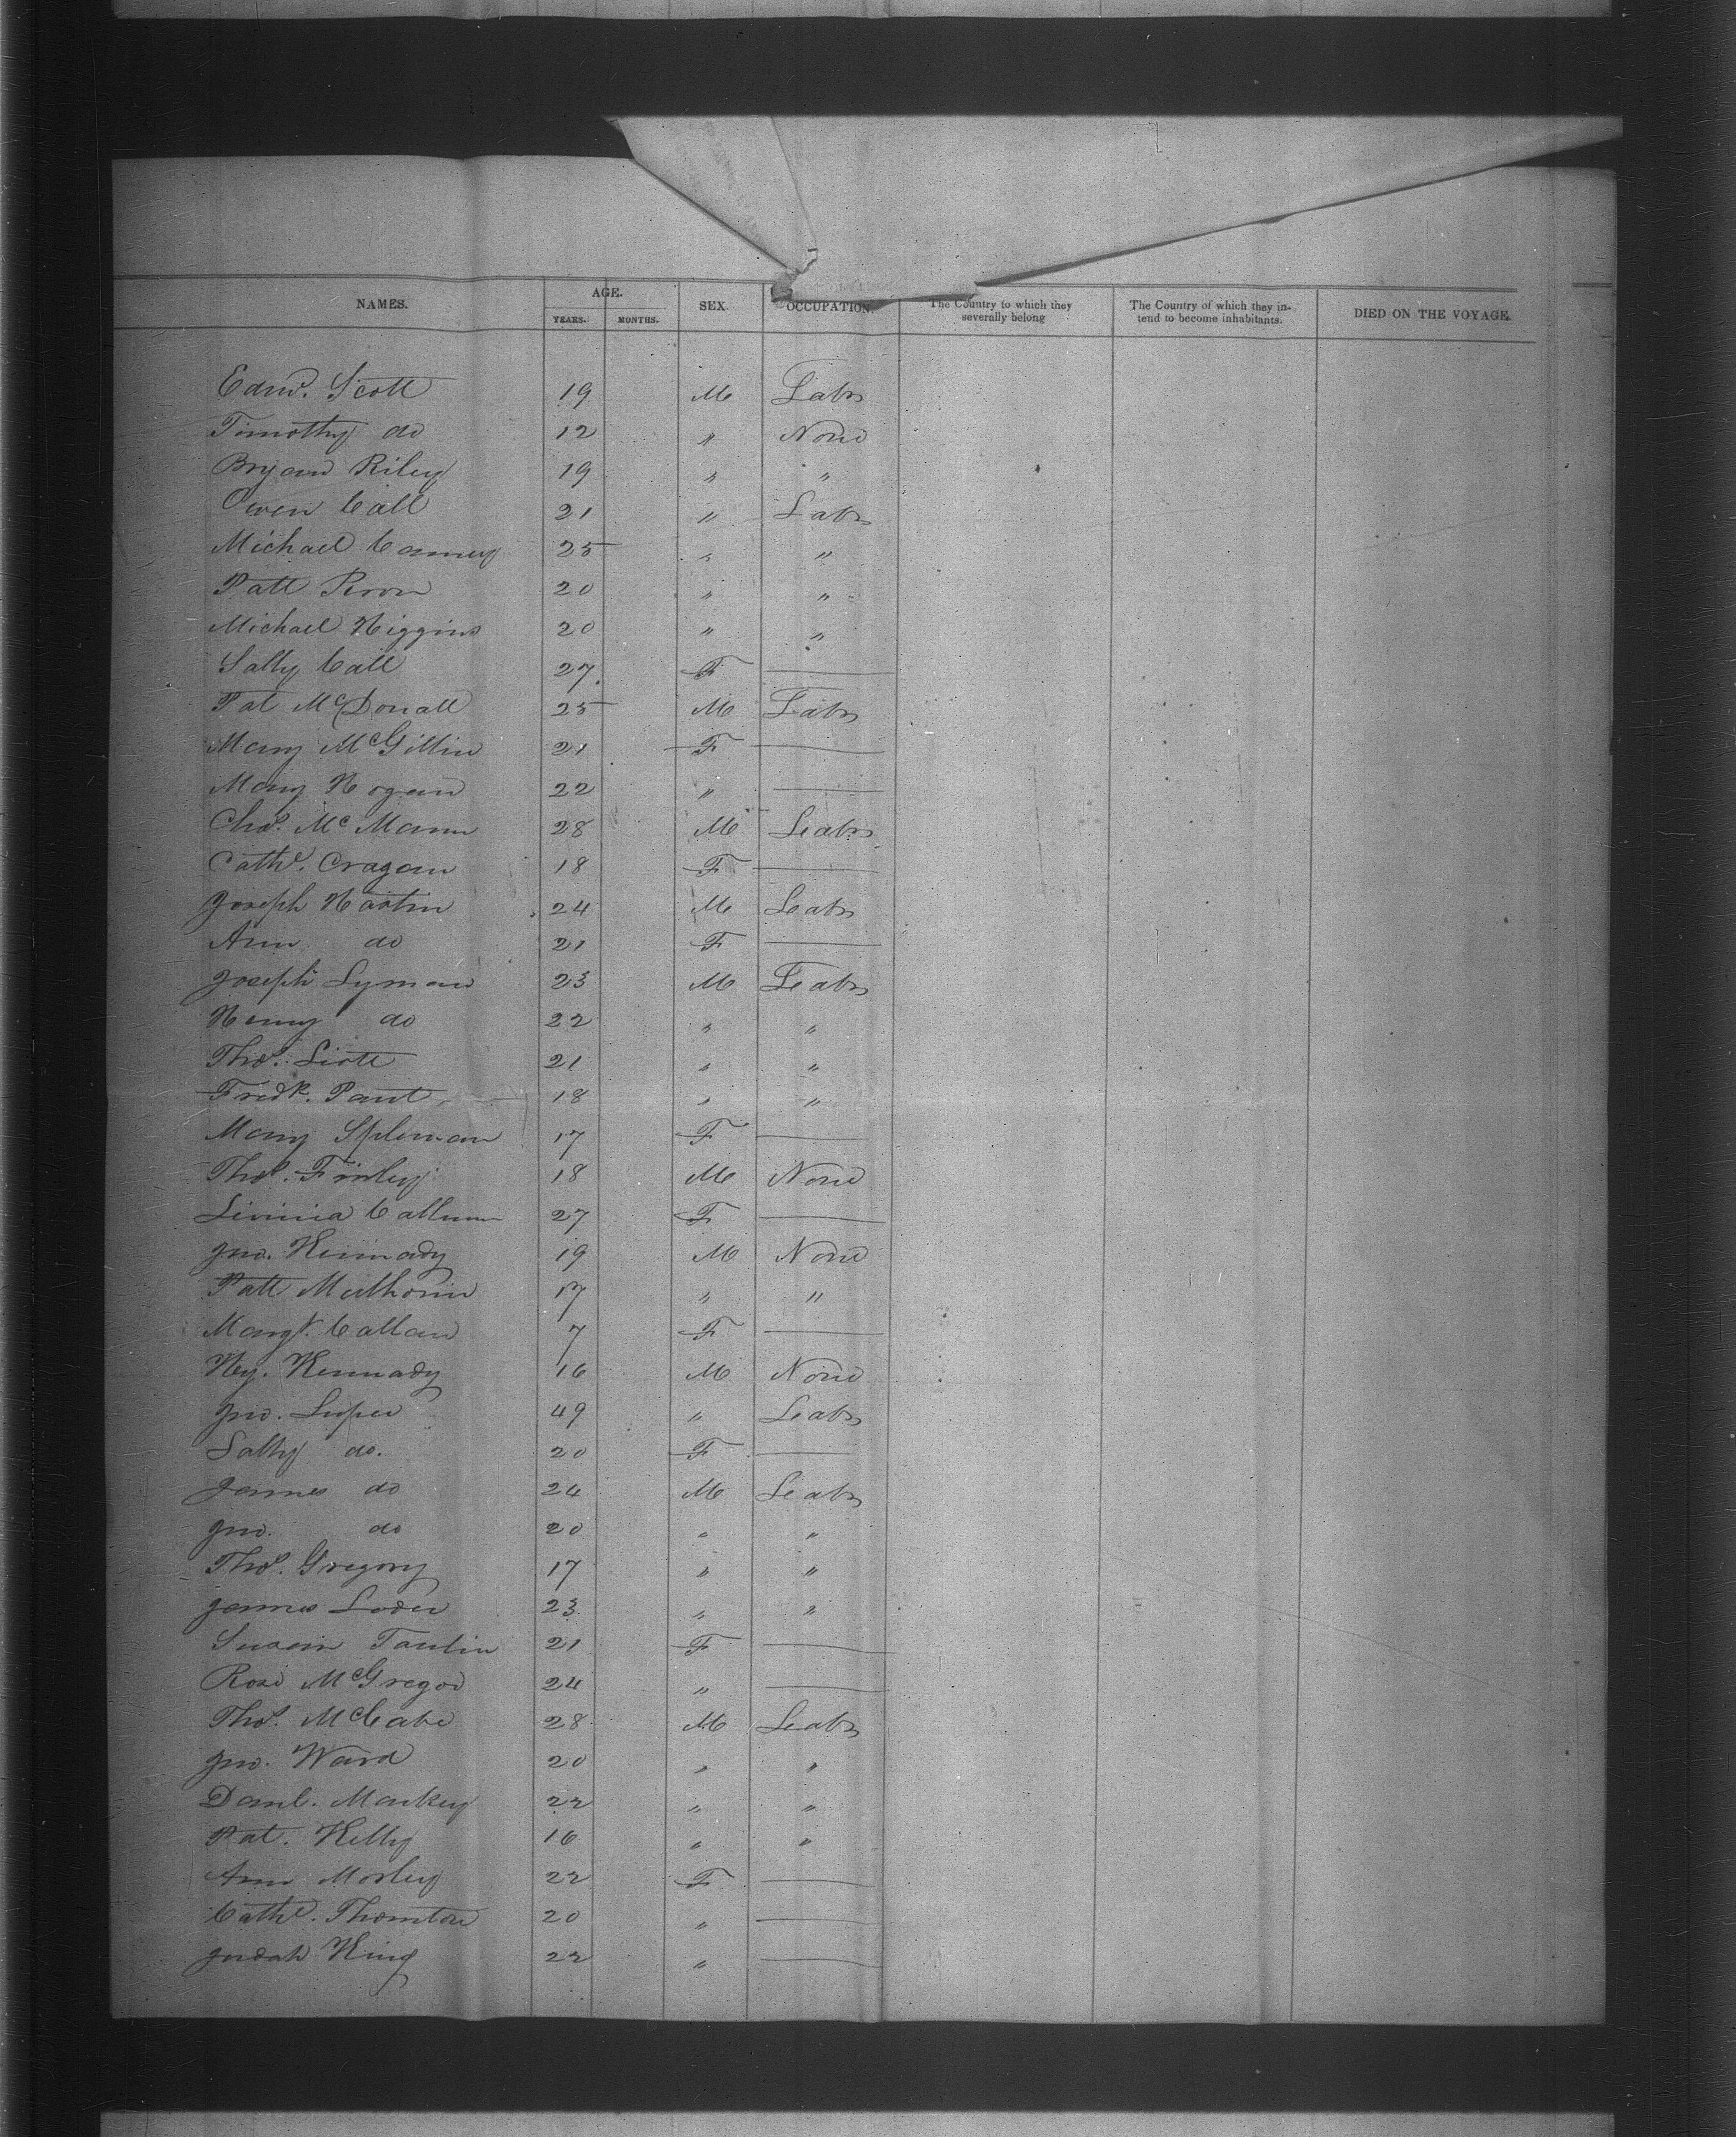 NAMES. AGE. SEX. OCCUPATION. The Country to which they severally belong The Country of which they intend to become inhabitants. DIED ON THE VOYAGE.
YEARS. MONTHS.
Edwd. Scott 19 M Labr
Timothy do 12 " None
Bryan Riley 19 " "
Owen Call 21 " Labr
Michael Canney 25 " "
Patt Kron 20 " "
Michael Higgins 20 " "
Sally Call 27 F —
Pat McDonall 25 M Labr
Mary McGillin 21 F —
Mary Hogan 22 " —
Chas. Mc Mann 28 M Labr
Cathe. Cragan 18 F —
Joseph Hastin 24 M Labr
Ann do 21 F —
Joseph Lyman 23 M Labr
Henry do 22 " "
Thos. Liott 21 " "
Fredk. Pant 18 " "
Mary Spleman 17 F —
Thos. Finley 18 M None
Livinia Callum 27 F —
Jno. Kennady 19 M None
Patt Mulhorin 17 " "
Margt. Callan 7 F —
Hy. Kennady 16 M None
Jno. Luper 49 " Labr
Sally do. 20 F —
James do 24 M Labr
Jno. do 20 " "
Thos. Gregory 17 " "
James Loder 23 " "
Susan Taulin 21 F —
Rose McGregor 24 " —
Thos. McCabe 28 M Labr
Jno. Ward 20 " "
Danl. Markey 22 " "
Pat. Kelly 16 " "
Ann Morley 22 F —
Cathe. Thornton 20 " —
Judah King 22 " —